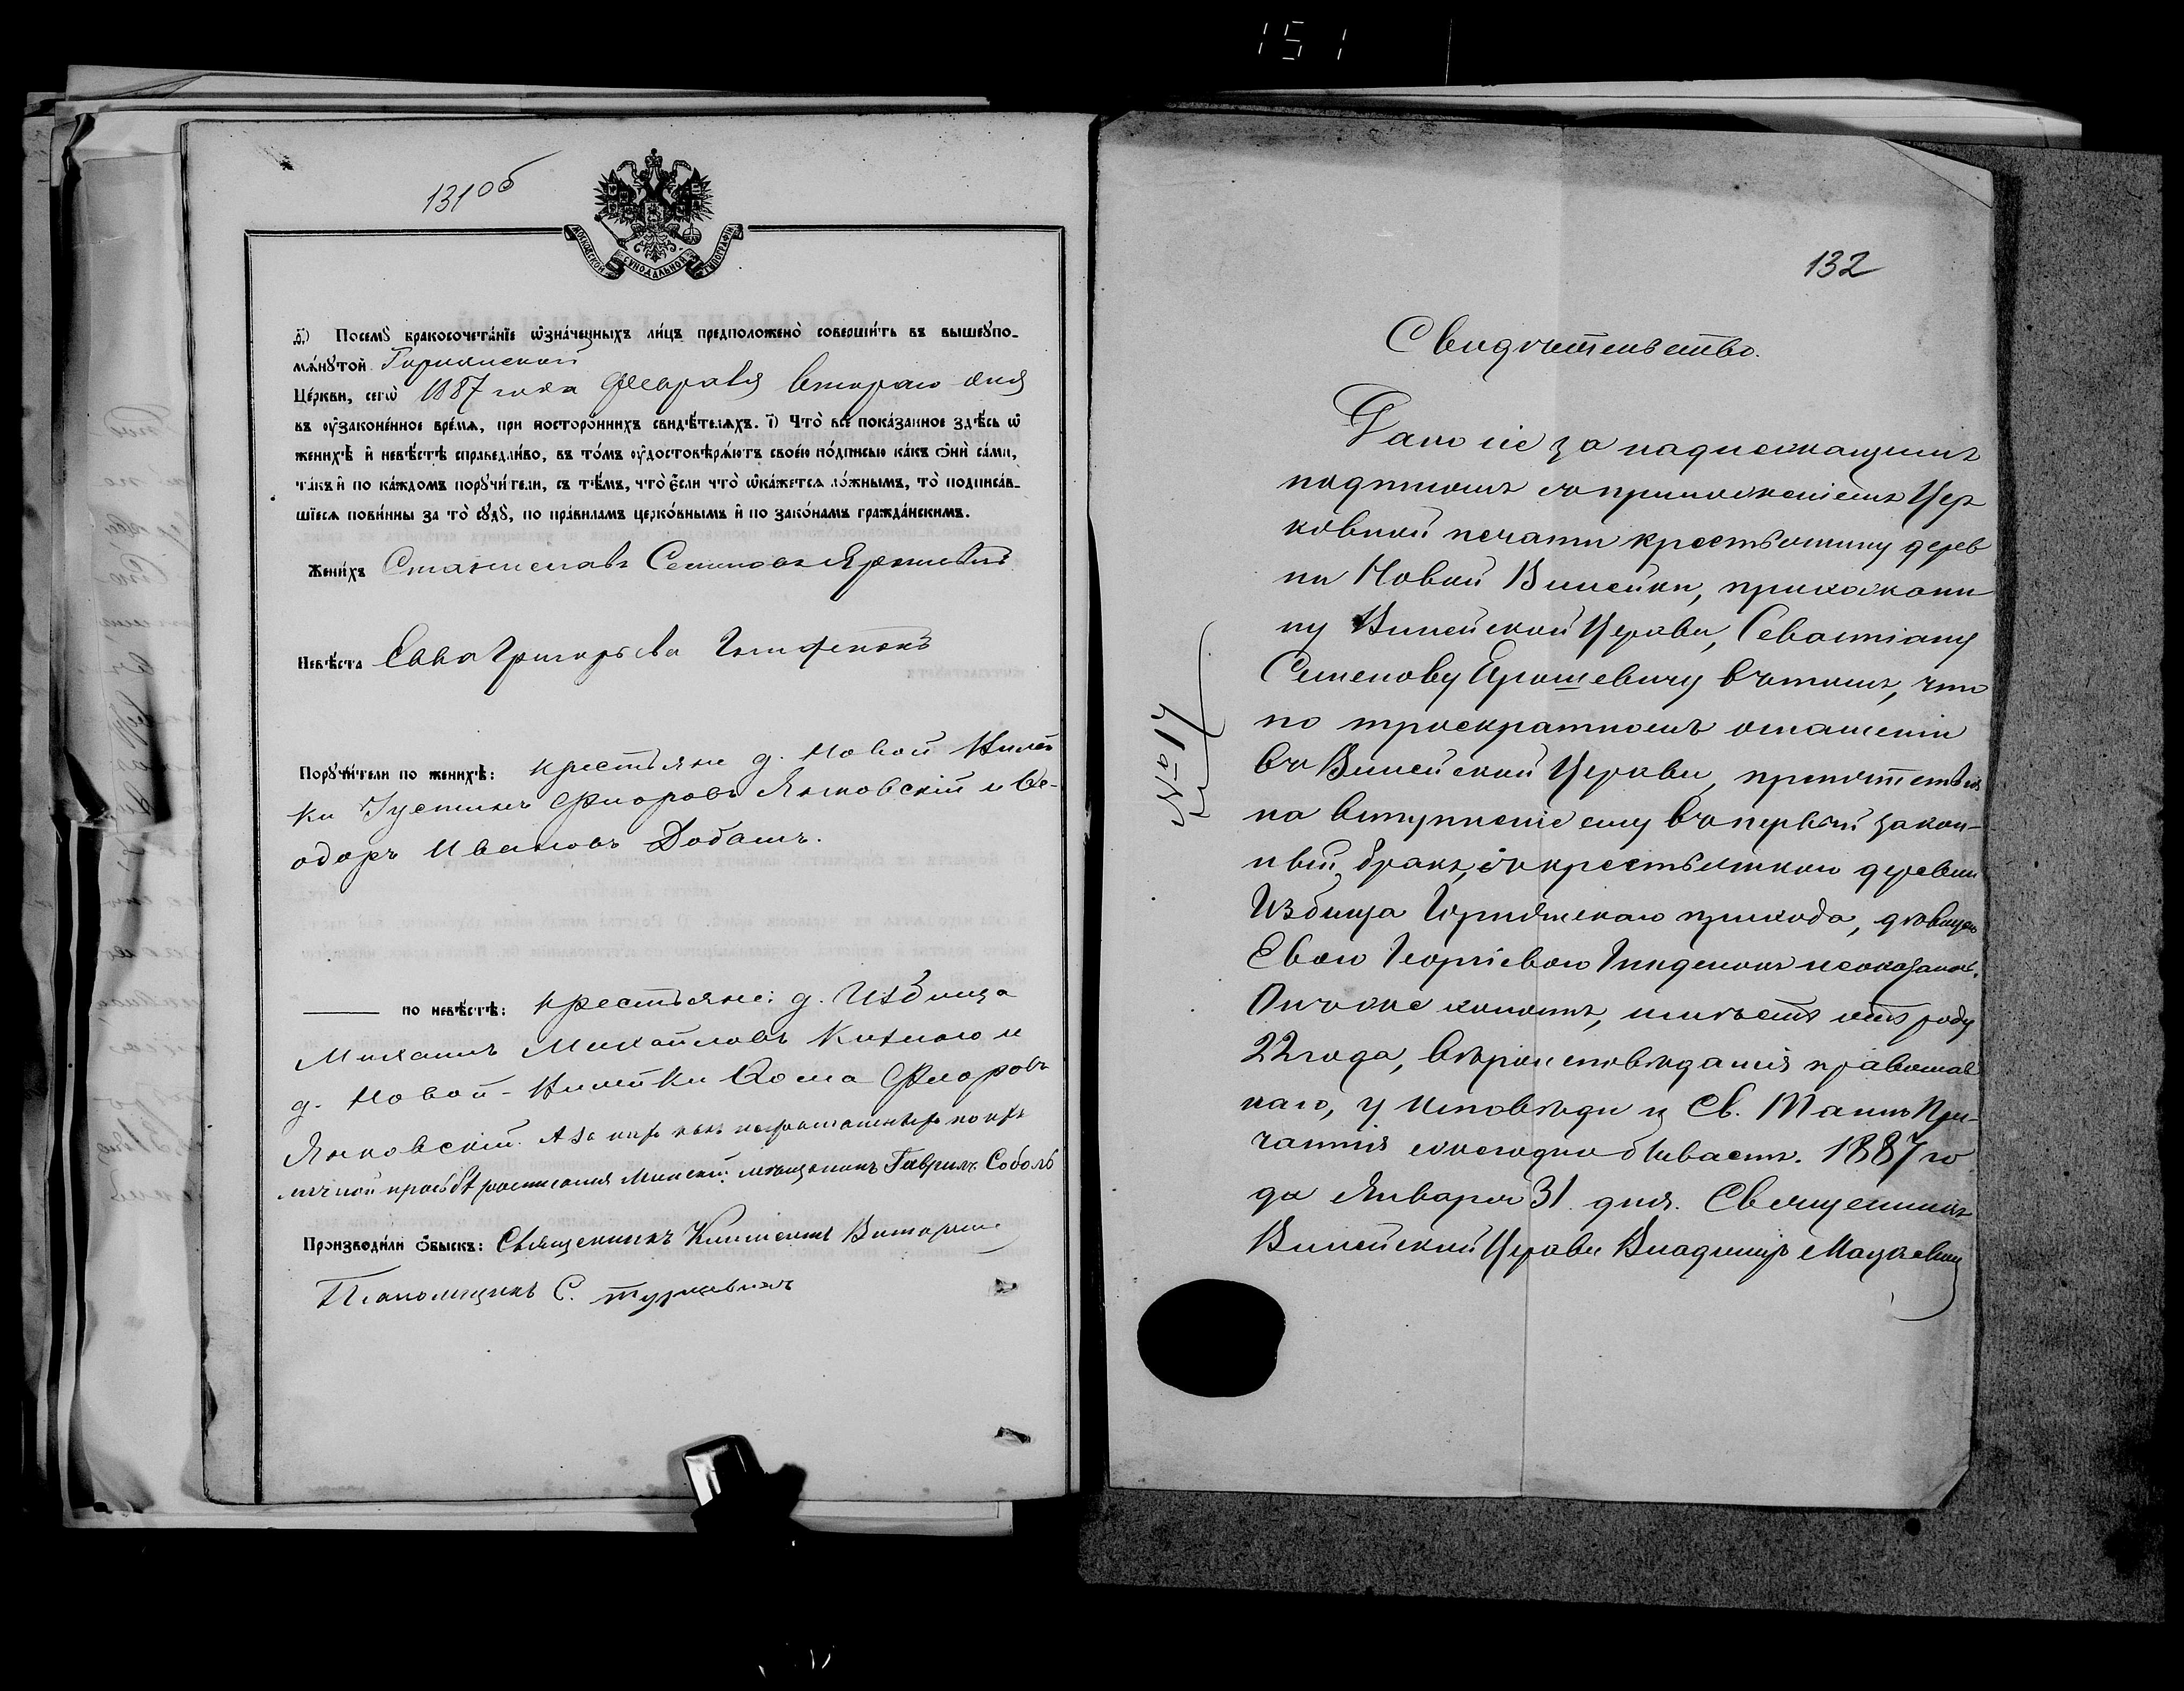 151
131об
МОСКОВСКОЙ СУНОДАЛЬНОЙ ТИПОГРАФІИ
д҃) Посемꙋ̀ бракосочета́нїе ѡ҆зна́ченныхъ ли́цъ предположено̀ соверши́ть въ вышеꙋпо-
мѧ́нꙋтой
Це́ркви, сегѡ̀ 1887 года Февраля втораго дня
въ ᲂу҆законе́нное вре́мѧ, при посторо́ннихъ свидѣ́телѧхъ. і҃) Что̀ всѐ пока́занное здѣ́сь ѡ҆
женихѣ̀ и҆ невѣ́стѣ справедли́во, въ то́мъ ᲂу҆достовѣрѧ́ютъ свое́ю по́дписью ка́къ ѻ҆нѝ са́ми,
та́къ и҆ по ка́ждомъ порꙋчи́тели, съ тѣ́мъ, что̀ є҆́сли что̀ ѡ҆ка́жетсѧ ло́жнымъ, то̀ подписа́в-
шїесѧ пови́нны за то̀ сꙋдꙋ̀, по пра́виламъ церко́внымъ и҆ по зако́намъ гражда́нскимъ.
Жени́хъ Станиславъ Семеновъ Ярошевичъ
Невѣ́ста Ева Григорьева
Порꙋчи́тели по женихѣ̀: крестьяне д. Новой Вилей
ки Іустинъ Флоровъ Янковскій и Ѳе-
одоръ Ивановъ Добашъ.
по невѣ́стѣ: крестьяне: д. Избища
Михаилъ Михайловъ и
д. Новой-Вилейки Ѳома Флоровъ
Янковскій. А за ихъ какъ неграмотныхъ по ихъ
личной прозьбѣ росписался Минскій мѣщанинъ Гаврилъ Соболь
Производи́ли ѻ҆́быскъ: Священникъ Климентъ
Псаломщикъ С.
132
Свидѣтельство.
Дано сіе за надлежащимъ
подписомъ съ приложеніемъ Цер
ковной печати крестьянину дерев
ни Новой Вилейки, прихожани
ну Вилейской Церкви, Севастіану
Семенову Ярошевичу въ томъ, что
по троекратномъ оглашеніи
въ Вилейской Церкви, препятствія
на вступленіе ему въ первый закон-
ный бракъ, съ крестьянкою деревни
Избища прихода, дѣвицею
Евою Георгіевою неоказалось.
Онъ же холостъ, имѣетъ отъ роду
22 года, вѣроисповѣданія православ
наго, у Исповѣди и Св. Таинъ При-
частія ежегодно бываетъ. 1887 го
да Января 31 дня. Священникъ
Вилейской Церкви Владиміръ Мацкевичъ
№ 14